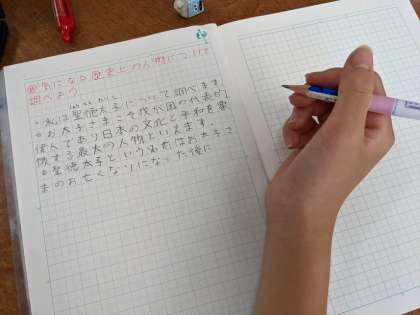 気になる歴史上の人物について
調べよう
私は聖徳太子について調べます。
お太子さまこそ我が国の代表的
偉人であり日本の文化と平和を象
徴する最大の人物といえます。
聖徳太子という名前はお太子さ
まのお亡くなりになった後に